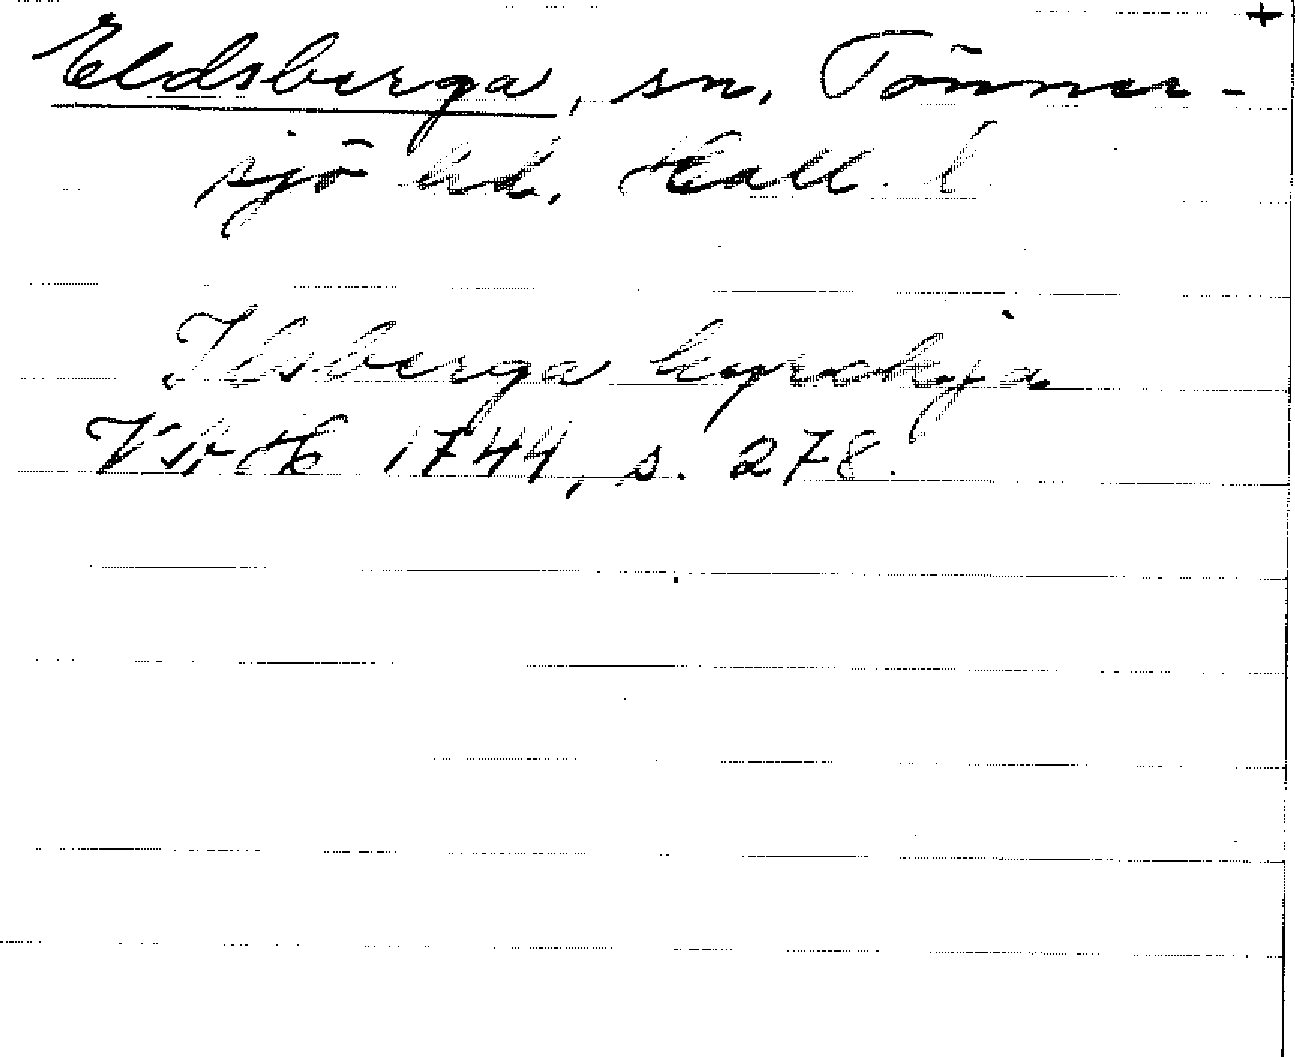 +
Eldsberga, sn, Tönner-
sjö hd. Hall. l
Ilsberga kyrckja
VsbH 1744, s. 278.